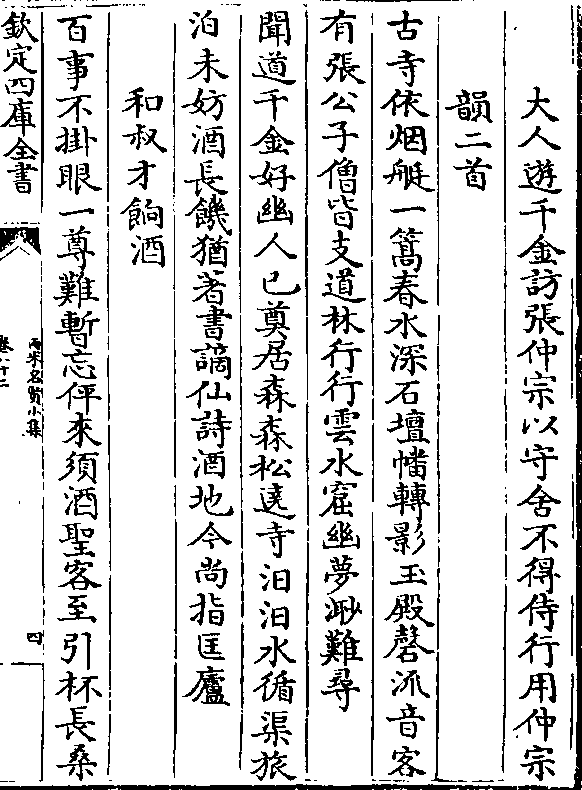 大人遊千金訪張仲宗以守舍不得侍行用仲宗
韻二首
古寺依烟艇一篙春水深石壇幡轉影玉殿磬流音客
有張公子僧皆支道林行行雲水窟幽夢渺難尋
聞道千金好幽人已奠居森森松遶寺汨汨水循渠旅
泊未妨酒長饑猶著書謫仙詩酒地今尚指匡廬
和叔才餉酒
百事不掛眼一尊難暫忘伻來須酒聖客至引杯長桑
欽定四庫全書
兩宋名賢小集
四